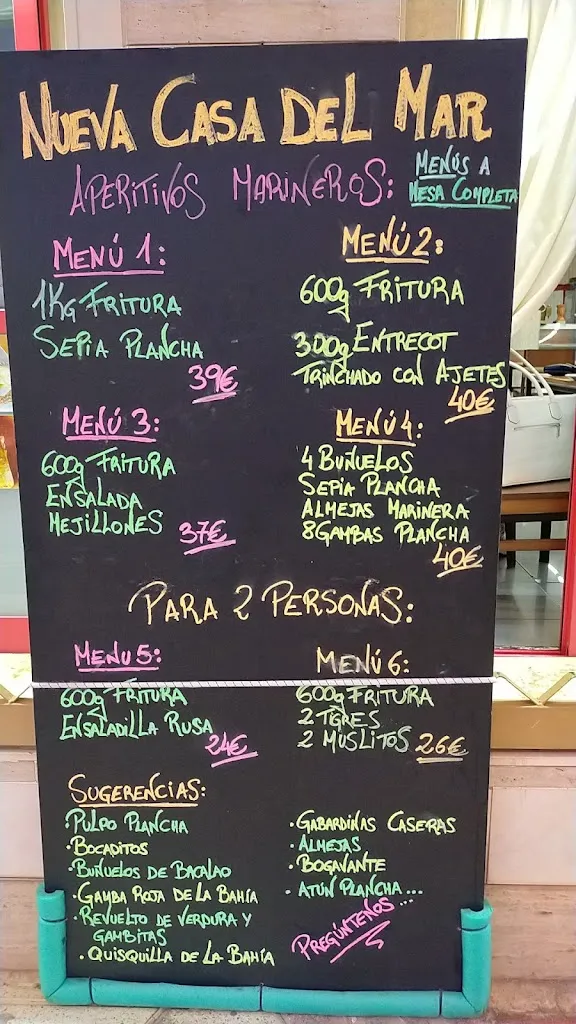 NUEVA CASA DEL MAR
APERITIVOS MARINEROS:
MENÚS A
MESA COMPLETA
MENÚ 1:
1KG FRITURA
SEPIA PLANCHA
39€
MENÚ 2:
600g FRITURA
300g ENTRECOT
TRINCHADO CON AJETES
40€
MENÚ 3:
600g FRITURA
ENSALADA
MEJILLONES
37€
MENÚ 4:
4 BUÑUELOS
SEPIA PLANCHA
ALMEJAS MARINERA
8 GAMBAS PLANCHA
40€
PARA 2 PERSONAS:
MENU 5:
600g FRITURA
ENSALADILLA RUSA
24€
MENÚ 6:
600g FRITURA
2 TIGRES
2 MUSLITOS 26€
SUGERENCIAS:
·PULPO PLANCHA
·BOCADITOS
·BUÑUELOS DE BACALAO
·GAMBA ROJA DE LA BAHÍA
·REVUELTO DE VERDURA Y
GAMBITAS
·QUISQUILLA DE LA BAHÍA
·GABARDINAS CASERAS
·ALMEJAS
·BOGAVANTE
·ATÚN PLANCHA...
PREGÚNTENOS...